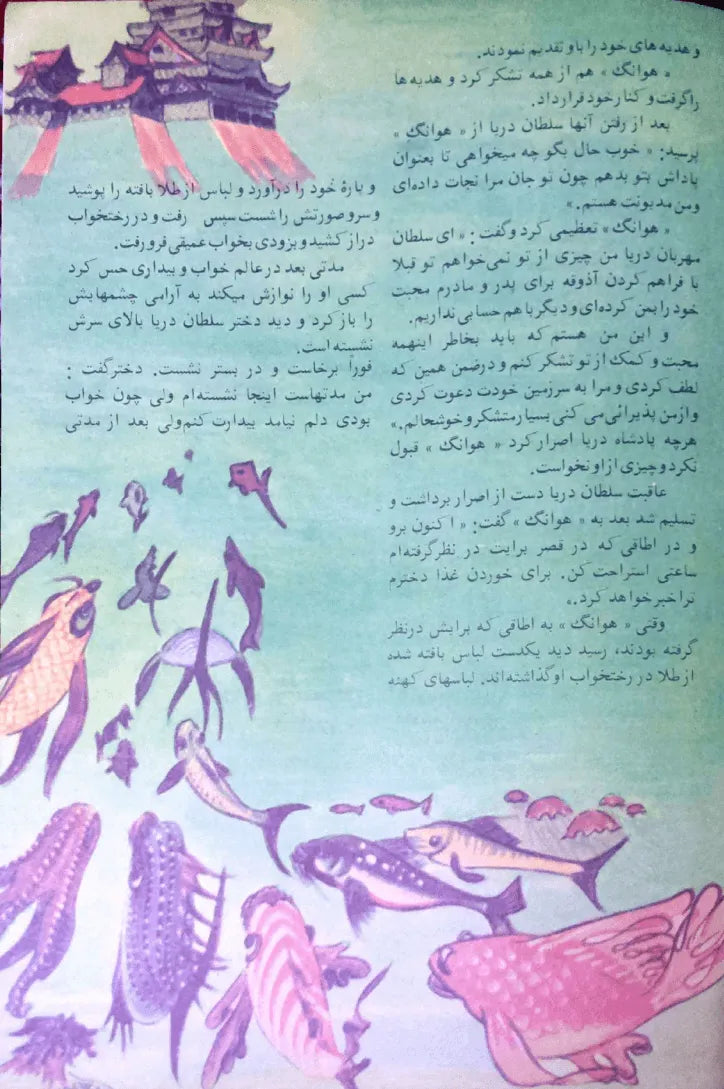 و هدیه های خود را باو تقدیم نمودند.
« هوانگ » هم از همه تشکر کرد و هدیه ها
راگرفت و کنار خود قرارداد.
بعد از رفتن آنها سلطان دریا از « هوانگ »
پرسید: « خوب حال بگو چه میخواهی تا بعنوان
پاداش بتو بدهم چون تو جان مرا نجات داده‌ای
ومن مدیونت هستم. »
« هوانگ » تعظیمی کرد و گفت: « ای سلطان
مهربان دریا من چیزی از تو نمی‌خواهم تو قبلا
با فراهم کردن آذوقه برای پدر و مادرم محبت
خود را بمن کرده‌ای و دیگر با هم حسابی نداریم.
و این من هستم که باید بخاطر اینهمه
محبت و کمک از تو تشکر کنم و درضمن همین که
لطف کردی و مرا به سرزمین خودت دعوت کردی
و ازمن پذیرائی می کنی بسیار متشکر و خوشحالم.»
هرچه پادشاه دریا اصرار کرد « هوانگ » قبول
نکرد و چیزی از او نخواست.
عاقبت سلطان دریا دست از اصرار برداشت و
تسلیم شد بعد به « هوانگ » گفت: « اکنون برو
و در اطاقی که در قصر برایت در نظر گرفته‌ام
ساعتی استراحت کن. برای خوردن غذا دخترم
ترا خبر خواهد کرد.»
وقتی « هوانگ » به اطاقی که برایش درنظر
گرفته بودند، رسید دید یکدست لباس بافته شده
از طلا در رختخواب او گذاشته‌اند. لباسهای کهنه
و پارهٔ خود را درآورد و لباس از طلا بافته را پوشید
و سر و صورتش را شست سپس رفت و در رختخواب
دراز کشید و بزودی بخواب عمیقی فرو رفت.
مدتی بعد در عالم خواب و بیداری حس کرد
کسی او را نوازش میکند به آرامی چشمهایش
را باز کرد و دید دختر سلطان دریا بالای سرش
نشسته است.
فوراً برخاست و در بستر نشست. دختر گفت :
من مدتهاست اینجا نشسته‌ام ولی چون خواب
بودی دلم نیامد بیدارت کنم ولی بعد از مدتی